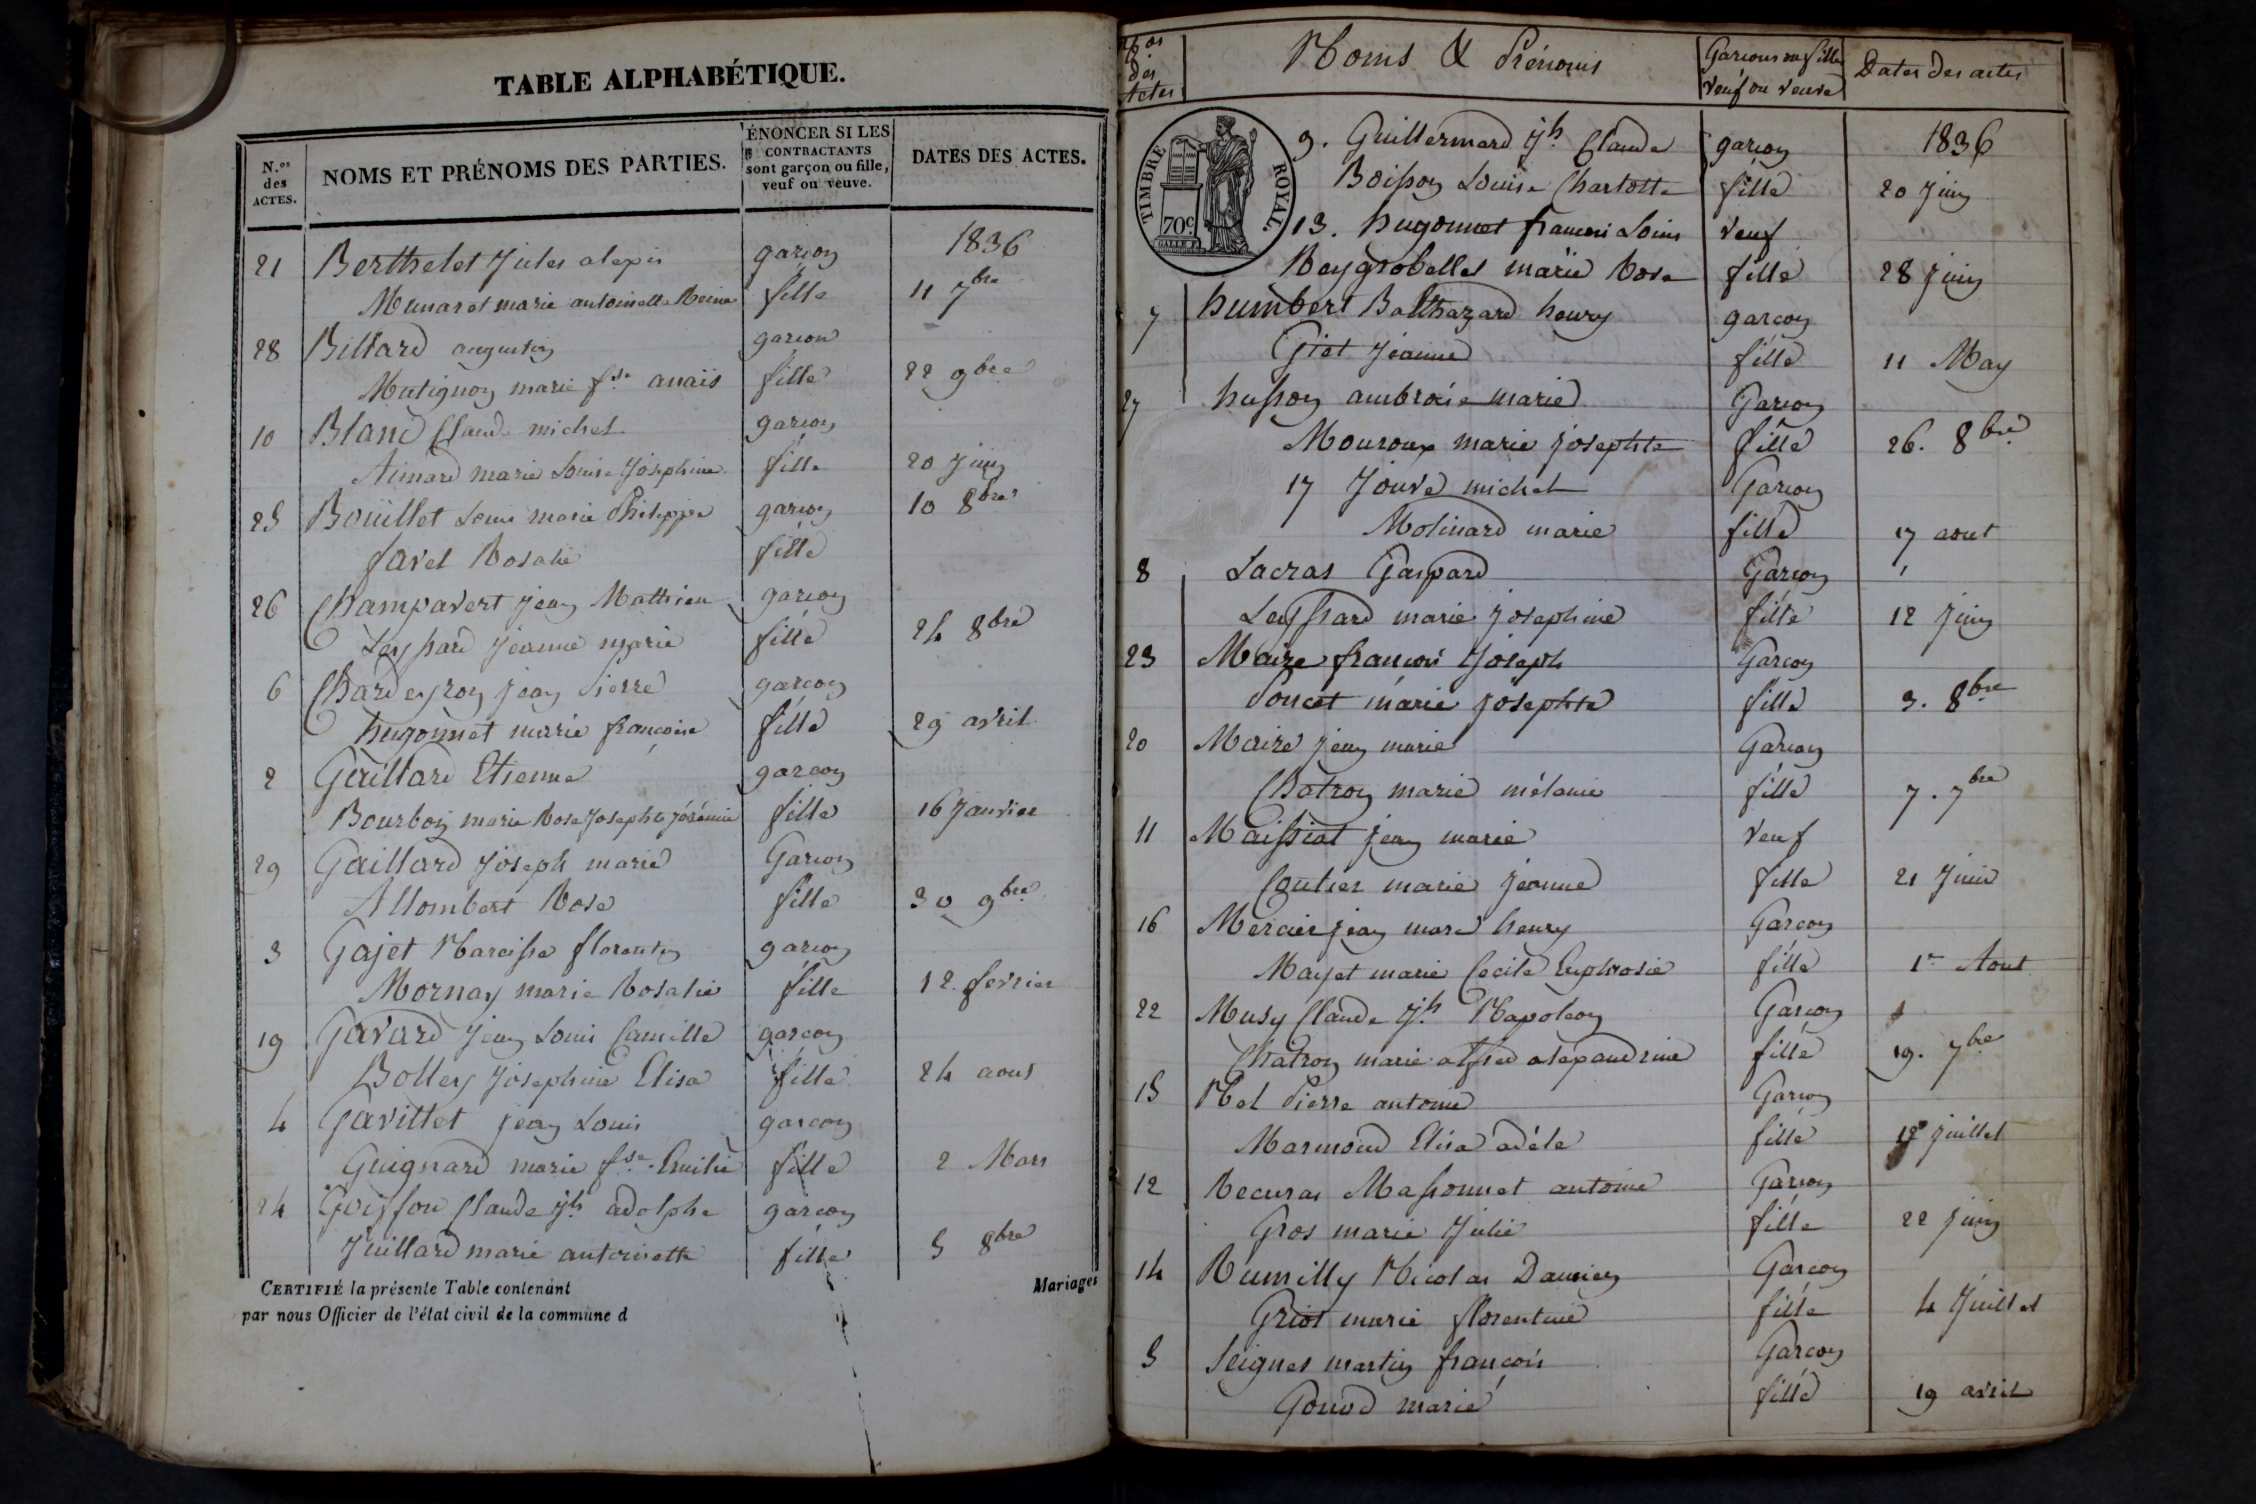 TABLE ALPHABÉTIQUE.
N.os des ACTES.
NOMS ET PRÉNOMS DES PARTIES.
ÉNONCER SI LES CONTRACTANTS sont garçon ou fille, veuf ou veuve.
DATES DES ACTES.
21 Berthelet Jules alexis garçon 1836
Munaret marie antoinette Reine fille 11 7bre
28 Billard augustin garçon
Matignon marie fse anaïs fille 22 9bre
10 Blanc Claude michel garçon
Aimard marie Louise Joséphine fille 20 Juin
25 Bouillet Louis marie Philippe garçon 10 8bre
favel Rosalie fille
26 Champavert jean Matthieu garçon
Leyssard Jeanne marie fille 24 8bre
6 Chardeyron jean Pierre garçon
hugonnet marie françoise fille 29 avril
2 Gaillard Etienne garçon
Bourbon marie Rose Josephte Jérémie fille 16 Janvier
29 Gaillard Joseph marie Garçon
Allombert Rose fille 30 9bre
3 Gajet Narcisse florentin garçon
Mornay marie Rosalie fille 12 fevrier
19 Gavard Jean Louis Camille garçon
Bolley Joséphine Elisa fille 24 aout
4 Gavillet jean Louis garçon
Guignard marie fse Emilie fille 2 Mars
24 Goiffon Claude jh adolphe garçon
Juillard marie antoinette fille 5 8bre
CERTIFIÉ la présente Table contenant Mariages
par nous Officier de l'état civil de la commune d
Nos des Actes
Noms & Prénoms
Garçons ou fille veuf ou veuve
Dates des actes
TIMBRE ROYAL.
70c
9. Guillermard jh Claude garçon 1836
Boisson Louise Charlotte fille 20 Juin
13. hugonnet francois Louis veuf
Reygrobellet marie Rose fille 28 juin
7 humbert Balthazard henry garçon
Giet Jeanne fille 11 May
27 husson ambroise marie Garçon
Mouroux marie josephte fille 26. 8bre
17 Jouve michel Garçon
Molinard marie fille 17 aout
8 Lacras Gaspard Garçon
Leyssard marie josephine fille 12 juin
23 Maire françois Joseph Garçon
Poncet marie josephte fille 3. 8bre
20 Maire jean marie Garçon
Chatron marie mélanie fille 7. 7bre
11 Maissiat jean marie veuf
Coutier marie jeanne fille 21 Juin
16 Mercier jean marc henry Garçon
Mayet marie Cecile Euphrosie fille 1er Aout
22 Musy Claude jh Napoléon Garçon
Chatron marie alfred alexandrine fille 19. 7bre
15 Nel Pierre antoine Garçon
Marmond Elisa adèle fille 12 juillet
12 Recuras Massonnet antoine Garçon
Gros marie Julie fille 22 juin
14 Rumilly Nicolas Damien Garçon
Griot marie florentine fille 4 Juillet
5 Seignes martin françois Garçon
Gonod marie fille 19 avril